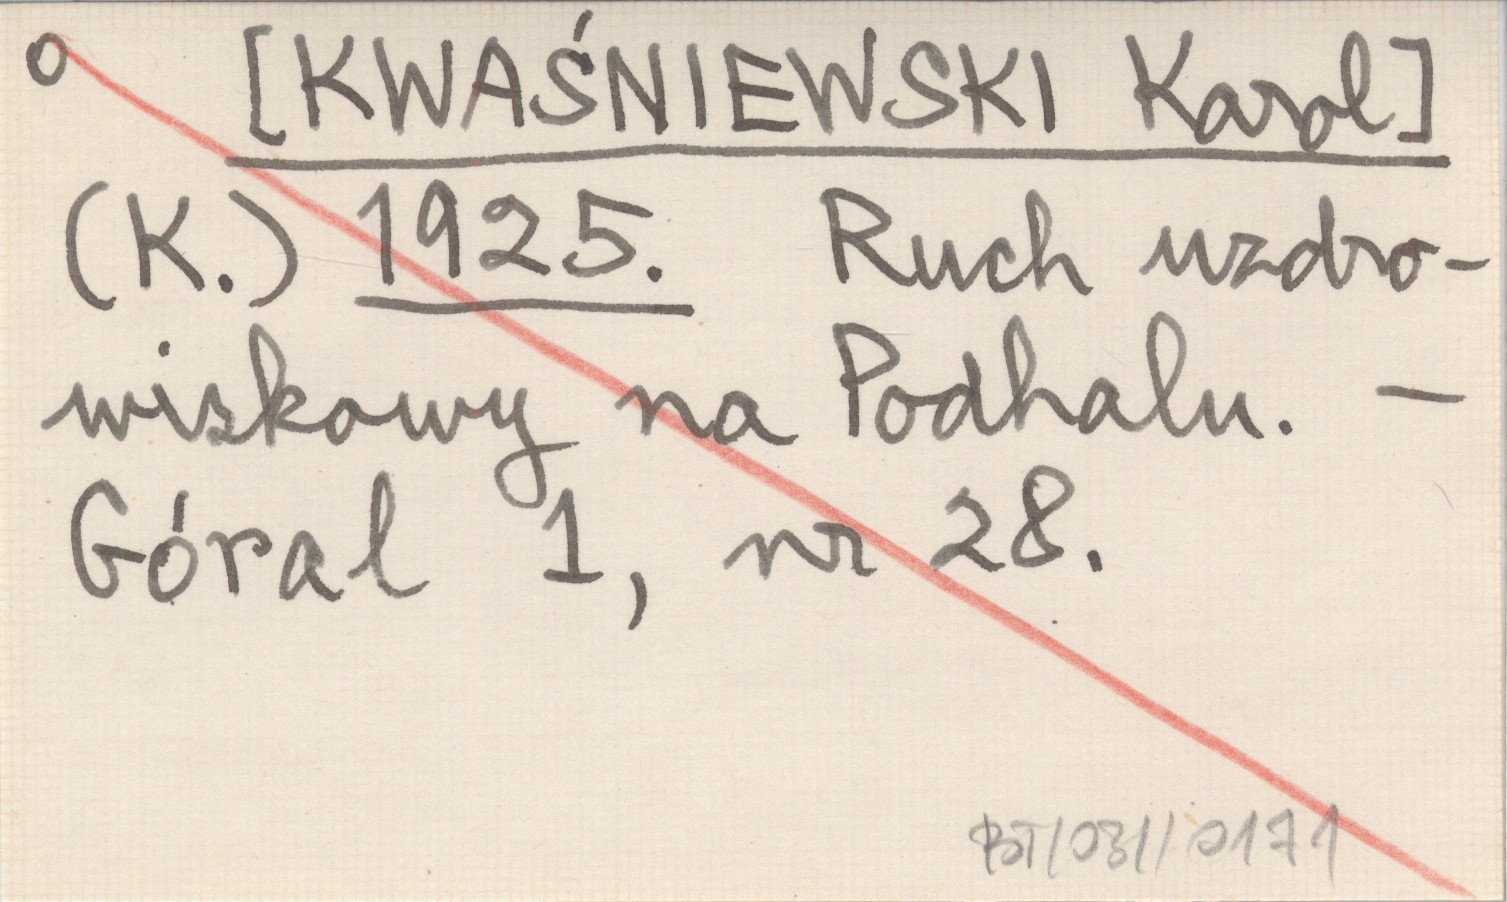 o [KWAŚNIEWSKI Karol]
(K.) 1925. Ruch uzdro-
wiskowy na Podhalu. —
Góral 1, nr 28.
BT/031/0171